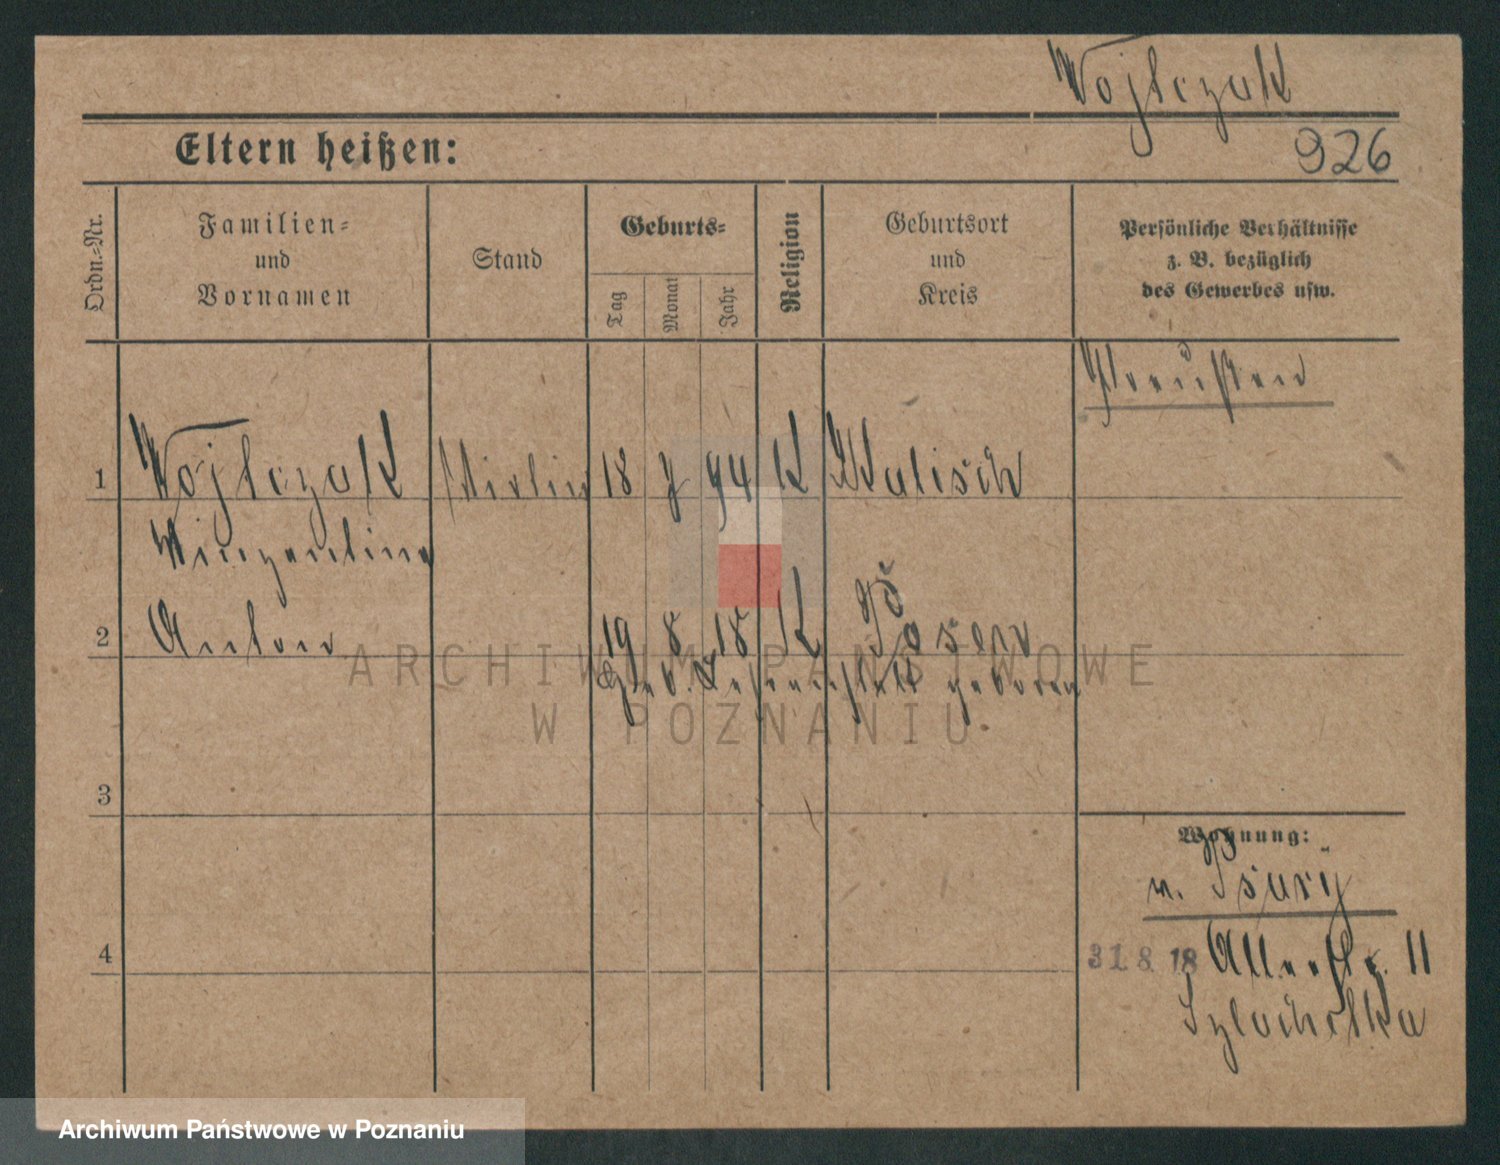 Wojtczak
926
Eltern heißen:
Ordn.-Nr.
Familien-
und
Vornamen
Stand
Geburts-
Tag
Monat
Jahr
Religion
Geburtsort
und
Kreis
Persönliche Verhältnisse
z. B. bezüglich
des Gewerbes usw.
Preußen
1 Wojtczak 18 7 94 K Kalisch
Winzentina
2 Anton 19 8 18 K Posen
geboren
3
Wohnung:
v.
4
31. 8. 18 11
Szlachetka
ARCHIWUM PAŃSTWOWE
W POZNANIU
Archiwum Państwowe w Poznaniu